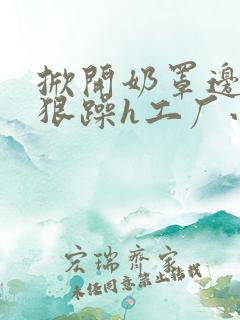 掀開奶罩邊
狠躁h工厂、
宏瑞齊家
未经同意禁止转载